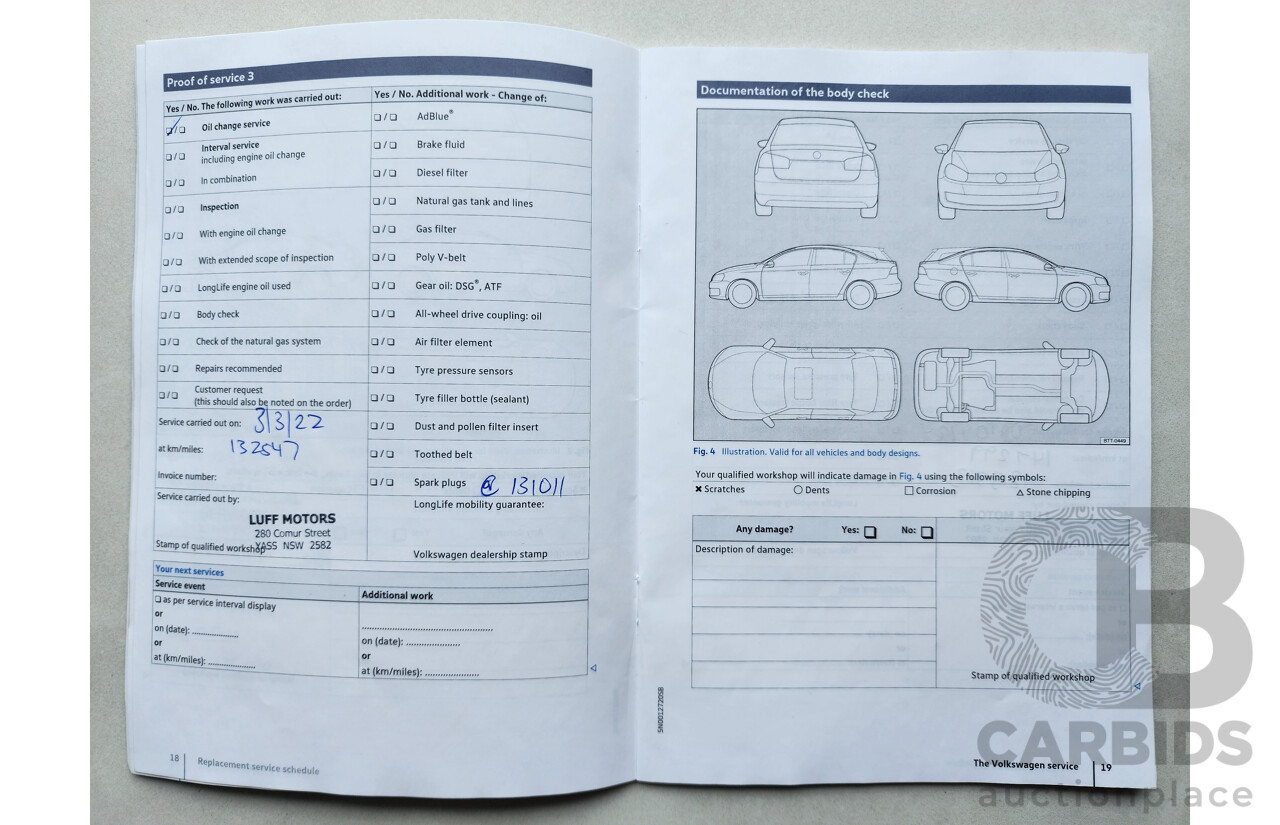 Proof of service 3
Yes / No. The following work was carried out:
❏ / ❏ Oil change service
❏ / ❏ Interval service
including engine oil change
❏ / ❏ In combination
❏ / ❏ Inspection
❏ / ❏ With engine oil change
❏ / ❏ With extended scope of inspection
❏ / ❏ LongLife engine oil used
❏ / ❏ Body check
❏ / ❏ Check of the natural gas system
❏ / ❏ Repairs recommended
❏ / ❏ Customer request
(this should also be noted on the order)
Service carried out on: 3/3/22
at km/miles: 132547
Invoice number:
Service carried out by:
LUFF MOTORS
280 Comur Street
YASS NSW 2582
Stamp of qualified workshop
Yes / No. Additional work - Change of:
❏ / ❏ AdBlue®
❏ / ❏ Brake fluid
❏ / ❏ Diesel filter
❏ / ❏ Natural gas tank and lines
❏ / ❏ Gas filter
❏ / ❏ Poly V-belt
❏ / ❏ Gear oil: DSG®, ATF
❏ / ❏ All-wheel drive coupling: oil
❏ / ❏ Air filter element
❏ / ❏ Tyre pressure sensors
❏ / ❏ Tyre filler bottle (sealant)
❏ / ❏ Dust and pollen filter insert
❏ / ❏ Toothed belt
❏ / ❏ Spark plugs @ 131011
LongLife mobility guarantee:
Volkswagen dealership stamp
Your next services
Service event
❏ as per service interval display
or
on (date): ....................
or
at (km/miles): ....................
Additional work
..................................................
on (date): ....................
or
at (km/miles): ....................
18 Replacement service schedule
Documentation of the body check
BTT-0449
Fig. 4 Illustration. Valid for all vehicles and body designs.
Your qualified workshop will indicate damage in Fig. 4 using the following symbols:
✖ Scratches ○ Dents □ Corrosion △ Stone chipping
Any damage? Yes: ❏ No: ❏
Description of damage:
Stamp of qualified workshop
SN0012720SB
The Volkswagen service 19
CB
CARBIDS
auctionplace